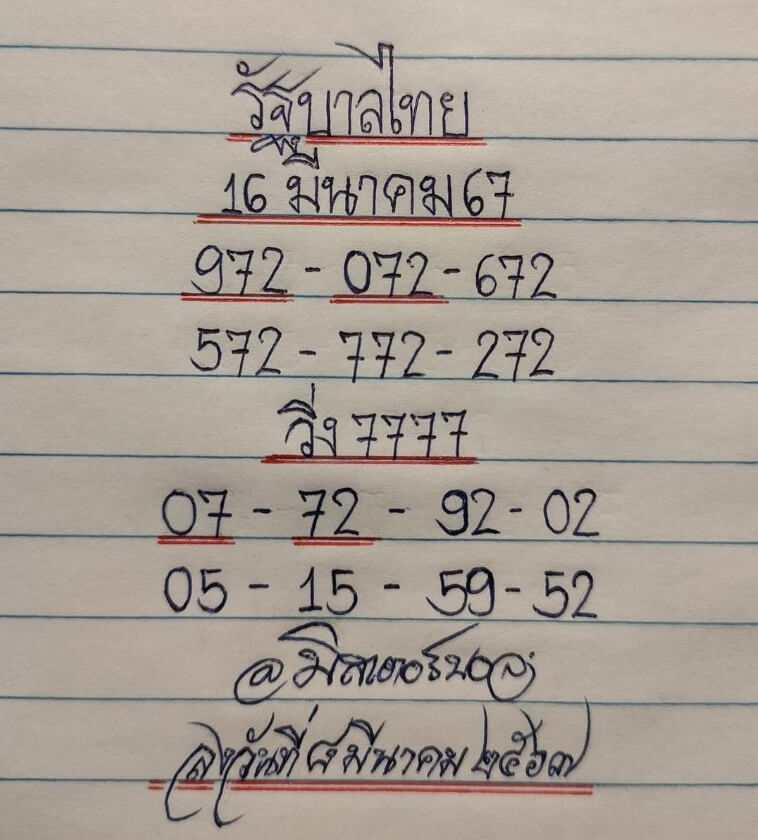 รัฐบาลไทย
16 มีนาคม 67
972 - 072 - 672
572 - 772 - 272
วิ่ง 7777
07 - 72 - 92 - 02
05 - 15 - 59 - 52
@มิสเตอร์บอล
ลงวันที่ ๘ มีนาคม ๒๕๖๗